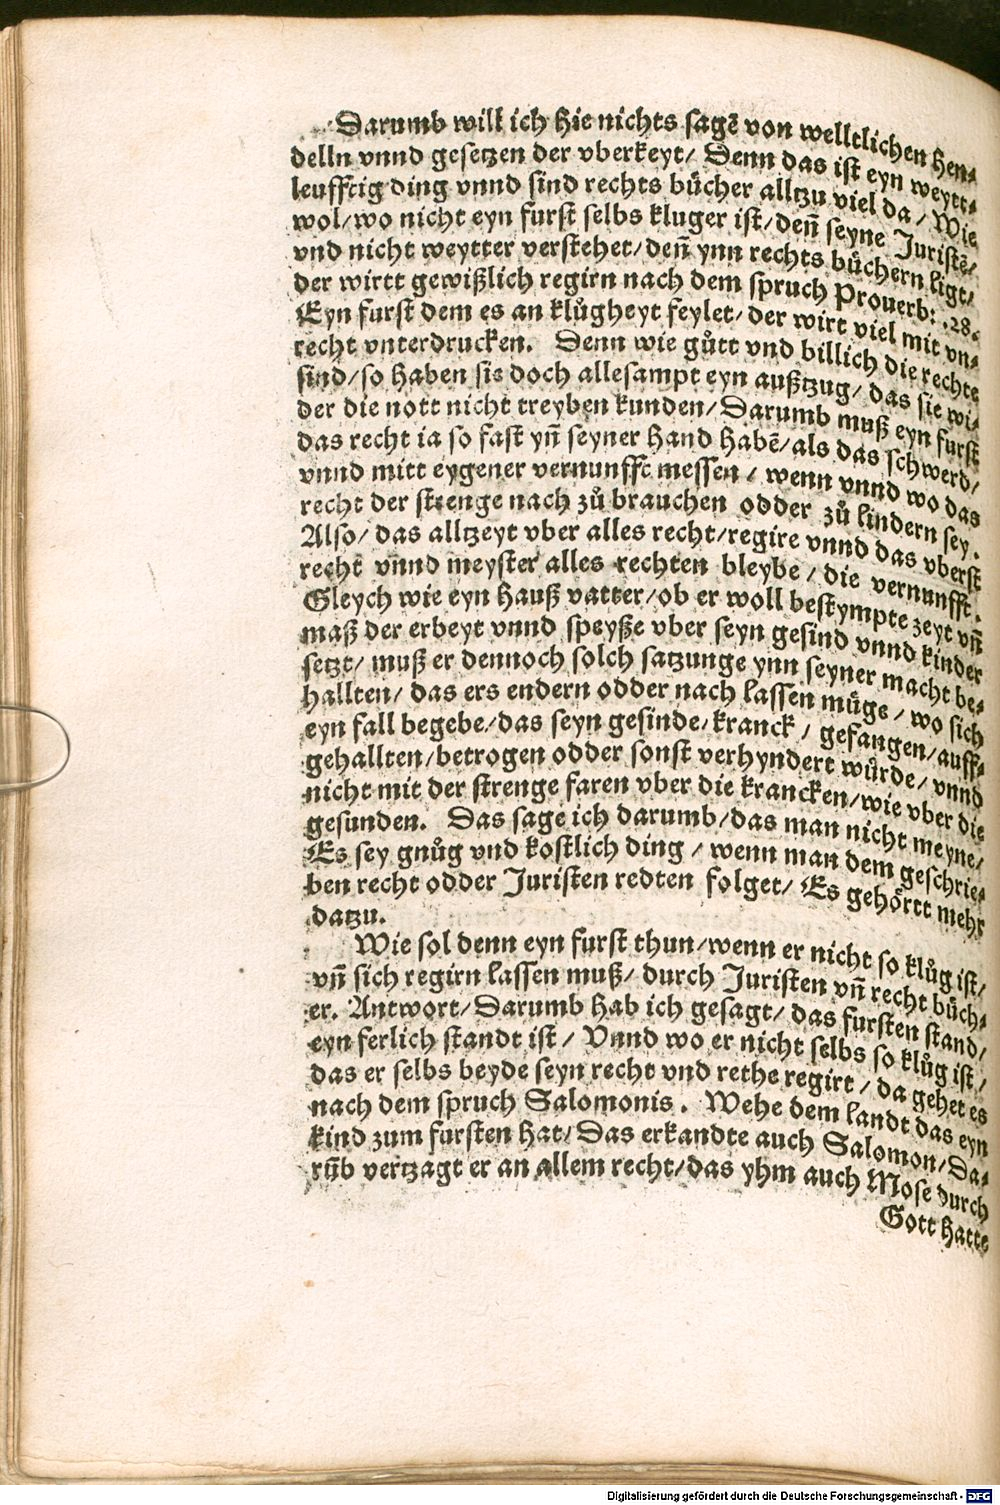 Darumb will ich hie nichts sagē von welltlichen hen⸗
delln vnnd gesetzen der vberkeyt/ Denn das ist eyn weytt⸗
leufftig ding vnnd sind rechts bücher alltzu viel da/ Wie
wol/wo nicht eyn furst selbs kluger ist/deñ seyne Juristē/
vnd nicht weytter verstehet/deñ ynn rechts bůchern ligt/
der wirtt gewißlich regirn nach dem spruch Prouerb: .28.
Eyn furst dem es an klůgheyt feylet/der wirt viel mit vn⸗
recht vnterdrucken. Denn wie gůtt vnd billich die rechte
sind/so haben sie doch allesampt eyn außtzug/das sie wi⸗
der die nott nicht treyben kunden/Darumb muß eyn furst
das recht ia so fast yñ seyner hand habē/als das schwerd/
vnnd mitt eygener vernunfft messen/ wenn vnnd wo das
recht der strenge nach zů brauchen odder zů lindern sey.
Also/ das alltzeyt vber alles recht/regire vnnd das vberst
recht vnnd meyster alles rechten bleybe/ die vernunfft.
Gleych wie eyn hauß vatter/ob er woll bestympte zeyt vñ
maß der erbeyt vnnd speyße vber seyn gesind vnnd kinder
setzt/ muß er dennoch solch satzunge ynn seyner macht be⸗
hallten/ das ers endern odder nach lassen müge/ wo sich
eyn fall begebe/das seyn gesinde/kranck/ gefangen/auff⸗
gehallten/betrogen odder sonst verhyndert wůrde/ vnnd
nicht mit der strenge faren vber die krancken/wie vber die
gesunden. Das sage ich darumb/das man nicht meyne/
Es sey gnůg vnd kostlich ding/ wenn man dem geschrie⸗
ben recht odder Juristen redten folget/ Es gehörtt mehr
datzu.
Wie sol denn eyn furst thun/wenn er nicht so klůg ist/
vñ sich regirn lassen muß/ durch Juristen vñ recht büch⸗
er. Antwort/ Darumb hab ich gesagt/ das fursten stand/
eyn ferlich standt ist/ Vnnd wo er nicht selbs so klůg ist/
das er selbs beyde seyn recht vnd rethe regirt/ da gehet es
nach dem spruch Salomonis. Wehe dem landt das eyn
kind zum fursten hat/ Das erkandte auch Salomon/Da⸗
rūb vertzagt er an allem recht/das yhm auch Mose durch
Gott hatte
Digitalisierung gefördert durch die Deutsche Forschungsgemeinschaft - DFG